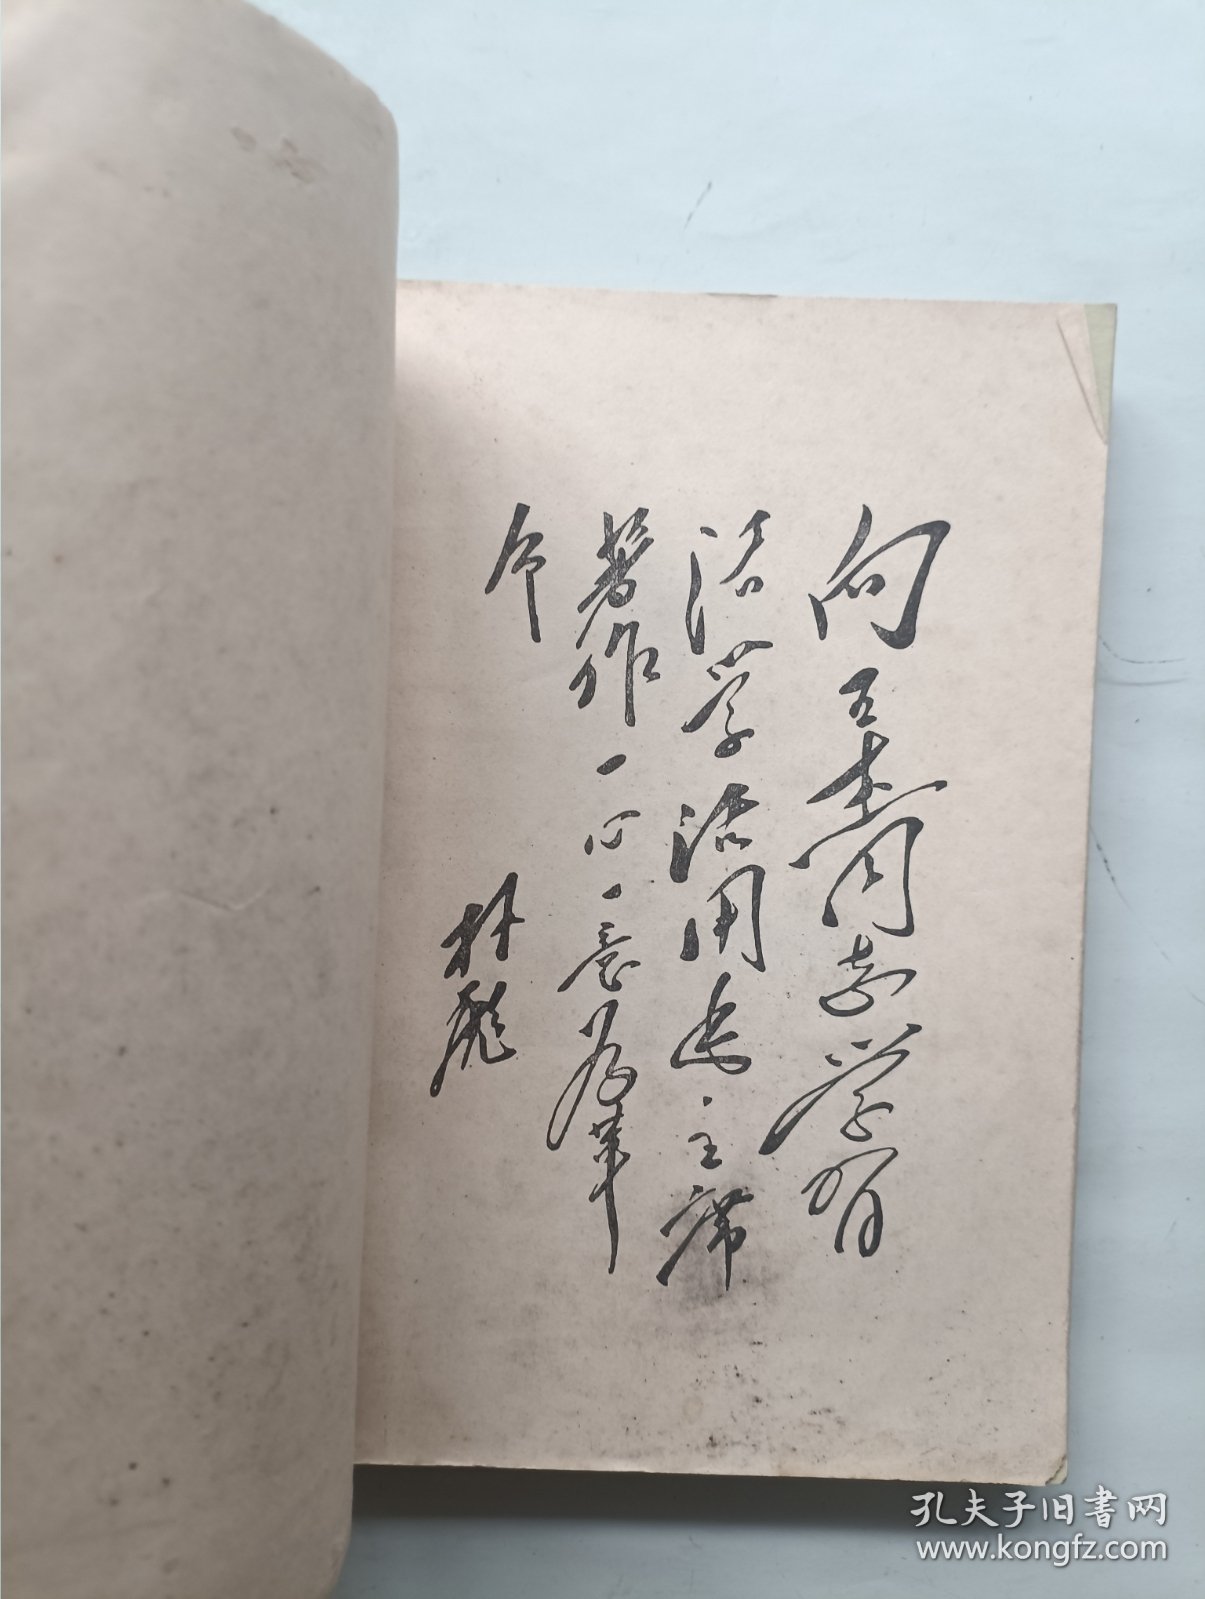 向王杰同志学習
活学活用毛主席
著作一心一意为革
命
林彪
孔夫子旧書网
www.kongfz.com